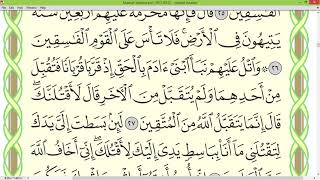 الْفَاسِقِينَ ٢٥ قَالَ فَإِنَّهَا مُحَرَّمَةٌ عَلَيْهِمْ أَرْبَعِينَ سَنَةً
يَتِيهُونَ فِي الْأَرْضِ فَلَا تَأْسَ عَلَى الْقَوْمِ الْفَاسِقِينَ
٢٦ وَاتْلُ عَلَيْهِمْ نَبَأَ ابْنَيْ آدَمَ بِالْحَقِّ إِذْ قَرَّبَا قُرْبَانًا فَتُقُبِّلَ
مِنْ أَحَدِهِمَا وَلَمْ يُتَقَبَّلْ مِنَ الْآخَرِ قَالَ لَأَقْتُلَنَّكَ
قَالَ إِنَّمَا يَتَقَبَّلُ اللَّهُ مِنَ الْمُتَّقِينَ ٢٧ لَئِنْ بَسَطْتَ إِلَيَّ يَدَكَ
لِتَقْتُلَنِي مَا أَنَا بِبَاسِطٍ يَدِيَ إِلَيْكَ لِأَقْتُلَكَ إِنِّي أَخَافُ اللَّهَ